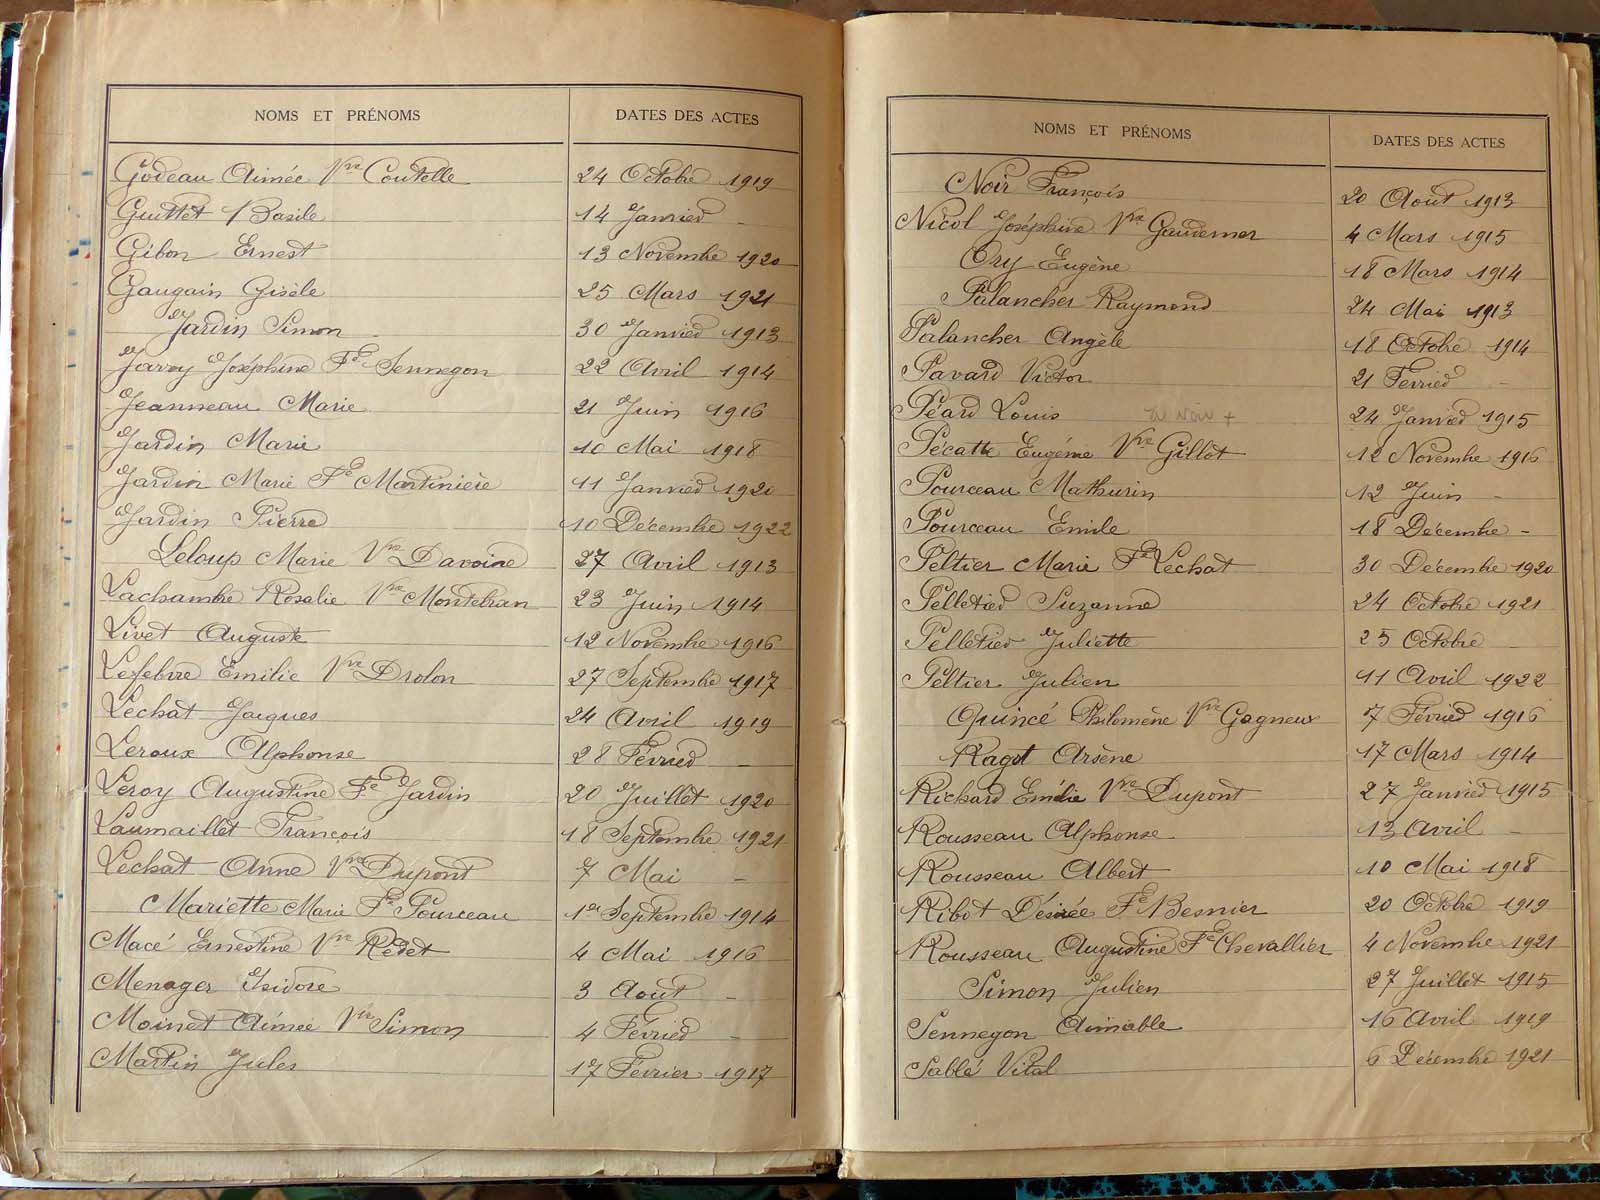 NOMS ET PRÉNOMS DATES DES ACTES
Godeau Aimée Vve Coutelle 24 Octobre 1919
Guittet Basile 14 Janvier -
Gibon Ernest 13 Novembre 1920
Gaugain Gisèle 25 Mars 1921
Jardin Simon 30 Janvier 1913
Javoy Joséphine Fe Sennegon 22 Avril 1914
Jeanneau Marie 21 Juin 1916
Jardin Marie 10 Mai 1918
Jardin Marie Fe Martinière 11 Janvier 1920
Jardin Pierre 10 Décembre 1922
Leloup Marie Vve Davoine 27 Avril 1913
Lachambre Rosalie Vve Montebran 23 Juin 1914
Livet Auguste 12 Novembre 1916
Lefebvre Emilie Vve Drolon 27 Septembre 1917
Lechat Jacques 24 Avril 1919
Leroux Alphonse 28 Février -
Leroy Augustine Fe Jardin 20 Juillet 1920
Laumaillet François 18 Septembre 1921
Lechat Anne Vve Dupont 7 Mai -
Mariette Marie Fe Pourceau 1er Septembre 1914
Macé Ernestine Vve Rédet 4 Mai 1916
Menager Isidore 3 Août -
Moinet Aimée Vve Simon 4 Février -
Martin Jules 17 Février 1917
NOMS ET PRÉNOMS DATES DES ACTES
Noir François 20 Août 1913
Nicol Joséphine Vve Gaudemer 4 Mars 1915
Ory Eugène 18 Mars 1914
Palancher Raymond 24 Mai 1913
Palancher Angèle 18 Octobre 1914
Pavard Victor 21 Fevrier -
Péard Louis 24 Janvier 1915
Pécatte Eugénie Vve Gillot 12 Novembre 1916
Pourceau Mathurin 12 Juin -
Pourceau Emile 18 Décembre -
Peltier Marie Fe Lechat 30 Décembre 1920
Pelletier Suzanne 24 Octobre 1921
Pelletier Juliette 25 Octobre
Peltier Julien 11 Avril 1922
Quincé Philomène Vve Gagneux 7 Février 1916
Ragot Arsène 17 Mars 1914
Richard Emélie Vve Dupont 27 Janvier 1915
Rousseau Alphonse 13 Avril -
Rousseau Albert 10 Mai 1918
Ribot Désirée Fe Besnier 20 Octobre 1919
Rousseau Augustine Fe Chevallier 4 Novembre 1921
Simon Julien 27 Juillet 1915
Sennegon Aimable 16 Avril 1919
Sablé Vital 6 Décembre 1921